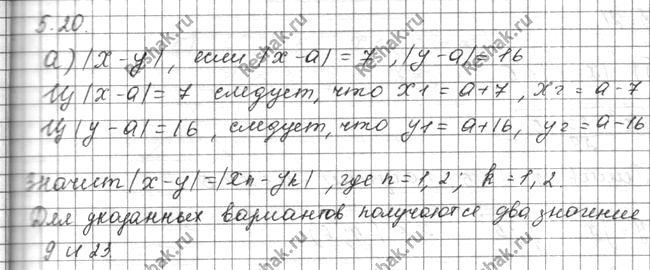 5.20.
а) |x-y|, если |x-a| = 7, |y-a| = 16
Из |x-a| = 7 следует, что x1 = a+7, x2 = a-7
Из |y-a| = 16, следует, что y1 = a+16, y2 = a-16
значит |x-y| = |xn-yk|, где n = 1,2; k = 1,2.
Для указанных вариантов получаются два значение
9 и 23.